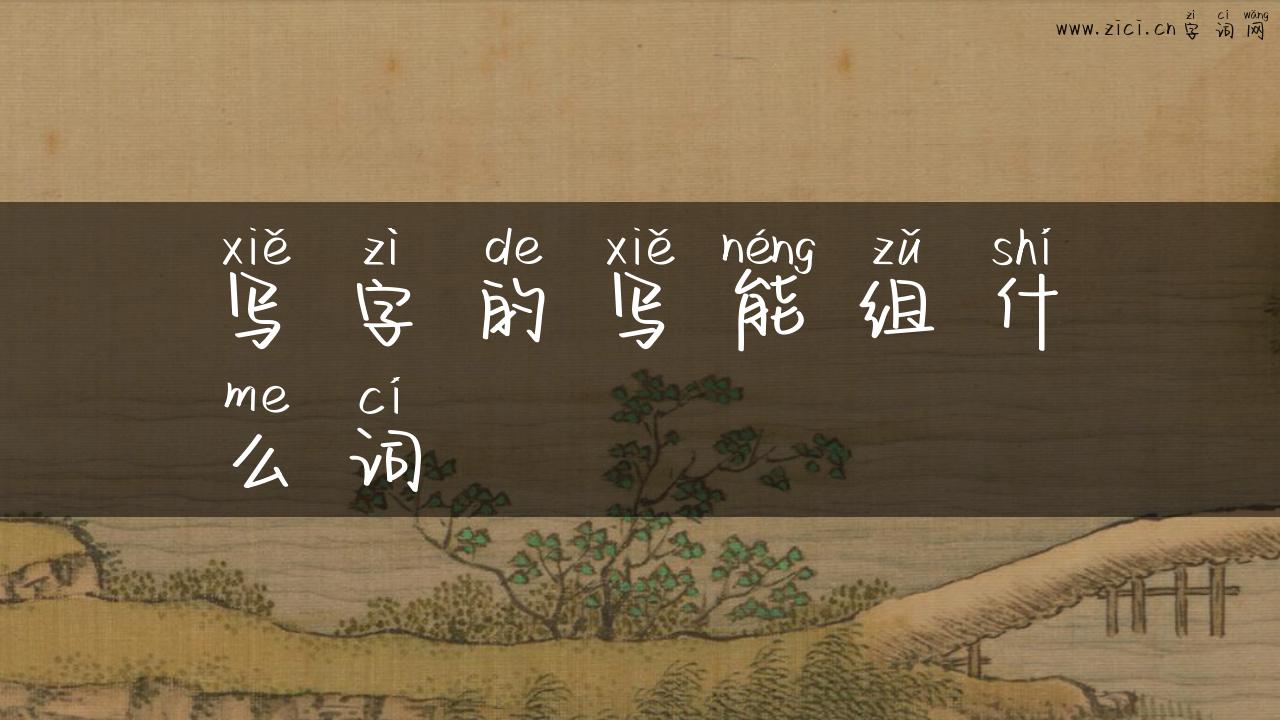 zì cí wǎng
www.zici.cn字词网
xiě zì de xiě néng zǔ shí
写字的写能组什
me cí
么词